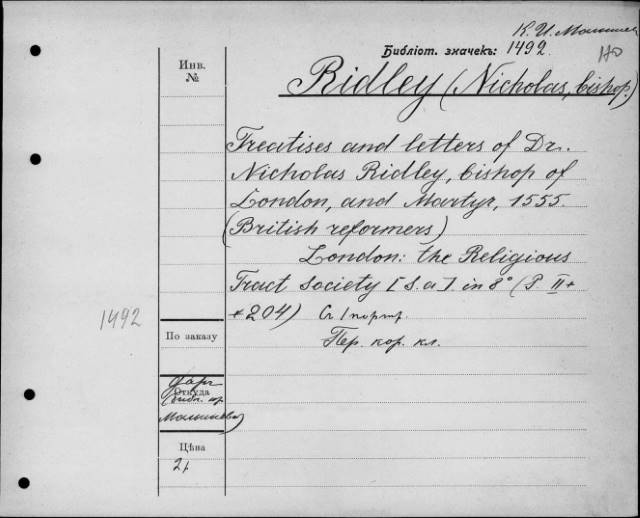 К. И. Малышев
Библіот. значекъ: 1492.
Инв.
№
Ridley (Nicholas, bishop.)
Treatises and letters of Dr.
Nicholas Ridley, bishop of
London, and Martyr, 1555.
(British reformers)
London: the Religious
Tract Society [s. a]. in 8° (P. II +
+ 204) Ст 1 портр.
Пер. кор. кл.
1492
По заказу
Даръ
Откуда
(библ. пр.
Малышева)
Цѣна
2 р